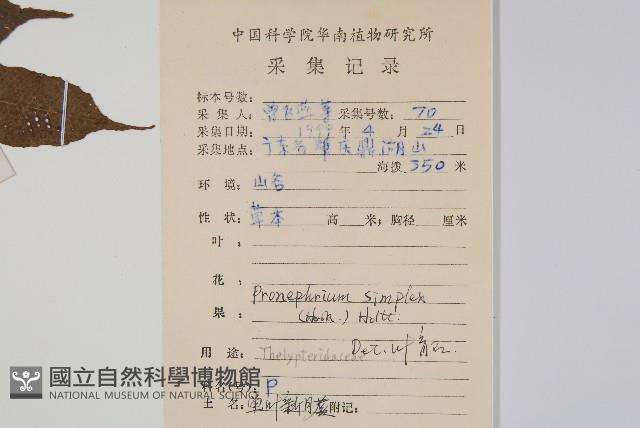 中国科学院华南植物研究所
采集记录
标本号数:
采集人: 曾飞燕等 采集号数: 70
采集日期: 1999 年 4 月 24 日
采集地点: 广东省肇庆鼎湖山
海拨 350 米
环境: 山谷
性状: 草本 高 米; 胸径 厘米
叶:
花:
Pronephrium simplex
果: (Hook.) Holtt.
Det. 叶育石.
用途: Thelypteridaceae
科名(号): P
土名: 单叶新月蕨 附记:
國立自然科學博物館
NATIONAL MUSEUM OF NATURAL SCIENCE